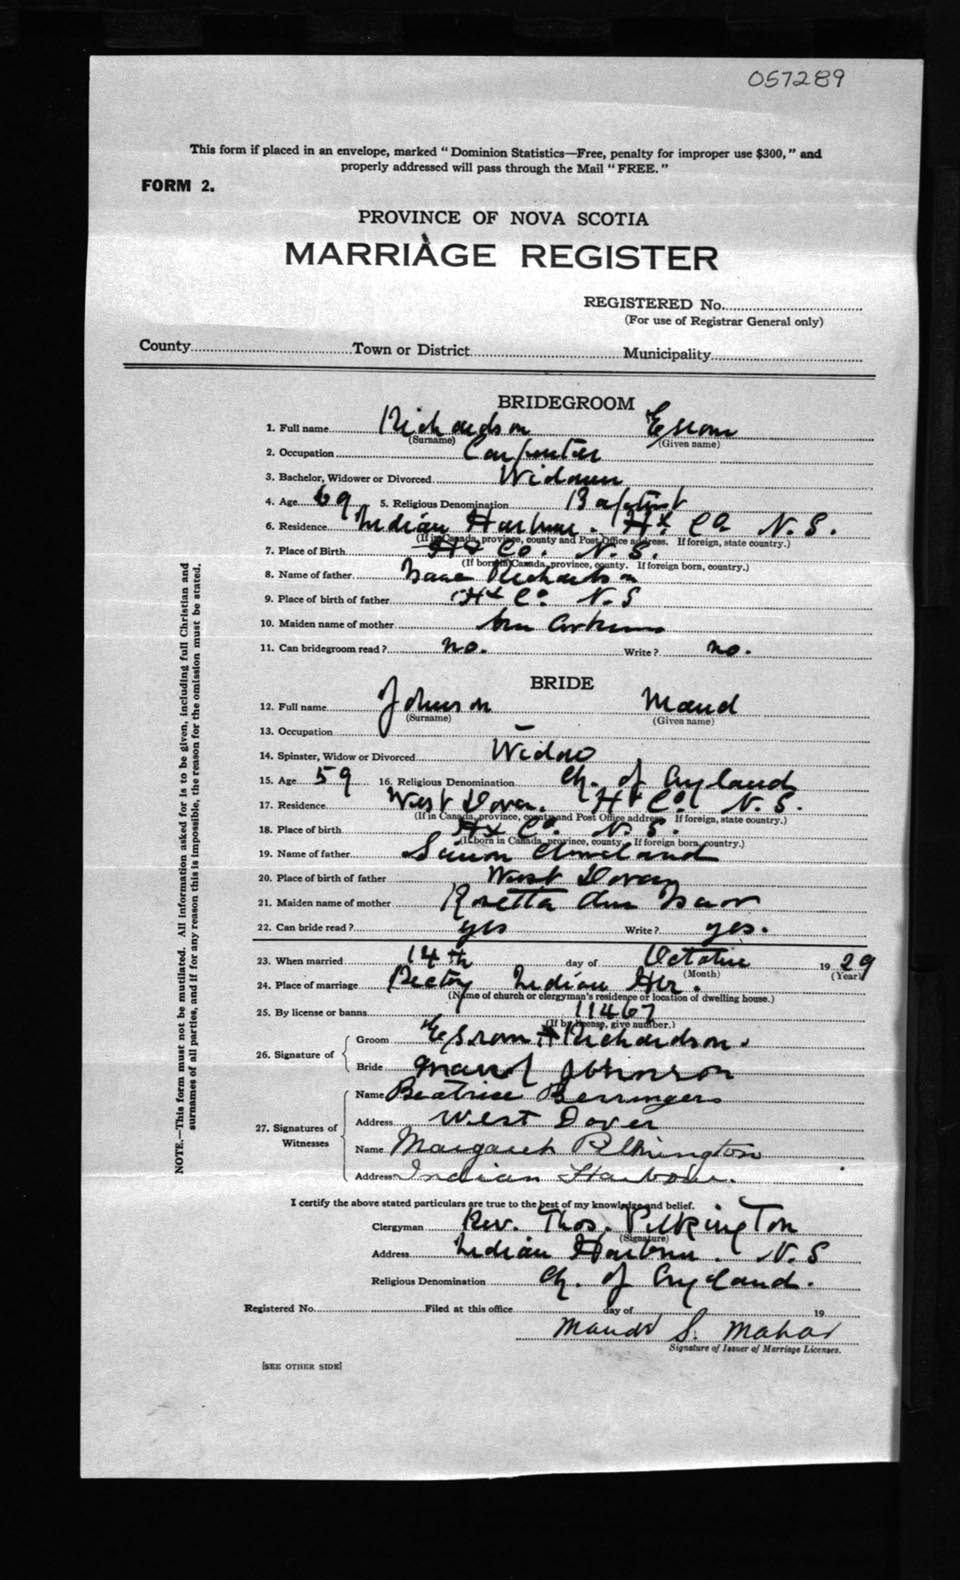 057289
This form if placed in an envelope, marked " Dominion Statistics—Free, penalty for improper use $300, " and
properly addressed will pass through the Mail " FREE. "
FORM 2.
PROVINCE OF NOVA SCOTIA
MARRIAGE REGISTER
REGISTERED No.
(For use of Registrar General only)
County Town or District Municipality
BRIDEGROOM
1. Full name Richardson Esrom
(Surname) (Given name)
2. Occupation Carpenter
3. Bachelor, Widower or Divorced Widower
4. Age 69 5. Religious Denomination Baptist
6. Residence Indian Harbour. Hx Co N. S.
(If in Canada, province, county and Post Office address. If foreign, state country.)
7. Place of Birth Hx Co. N. S.
(If born in Canada, province, county. If foreign born, country.)
8. Name of father Isaac Richardson
9. Place of birth of father Hx Co N. S
10. Maiden name of mother
11. Can bridegroom read? no. Write? no.
BRIDE
12. Full name Johnson Maud
(Surname) (Given name)
13. Occupation —
14. Spinster, Widow or Divorced Widow
15. Age 59 16. Religious Denomination Ch. of England
17. Residence West Dover. Hx Co. N. S.
(If in Canada, province, county and Post Office address. If foreign, state country.)
18. Place of birth Hx Co. N. S.
(If born in Canada, province, county. If foreign born, country.)
19. Name of father Cleveland
20. Place of birth of father West Dover
21. Maiden name of mother Rosetta Ann
22. Can bride read? yes Write? yes.
23. When married 14th day of October 1929
(Month) (Year)
24. Place of marriage Rectory Indian Hbr.
(Name of church or clergyman's residence or location of dwelling house.)
25. By license or banns 11467
(If by license, give number.)
26. Signature of
Groom Esrom Richardson.
Bride Maud Johnson
27. Signatures of Witnesses
Name Beatrice Berringers
Address West Dover
Name Margaret Pilkington
Address Indian Harbour.
I certify the above stated particulars are true to the best of my knowledge and belief.
Clergyman Rev. Thos. Pilkington
(Signature)
Address Indian Harbour. N. S
Religious Denomination Ch. of England.
Registered No. Filed at this office day of 19
Maude S. Mahar
Signature of Issuer of Marriage Licenses.
[SEE OTHER SIDE]
NOTE.—This form must not be mutilated. All information asked for is to be given, including full Christian and
surnames of all parties, and if for any reason this is impossible, the reason for the omission must be stated.